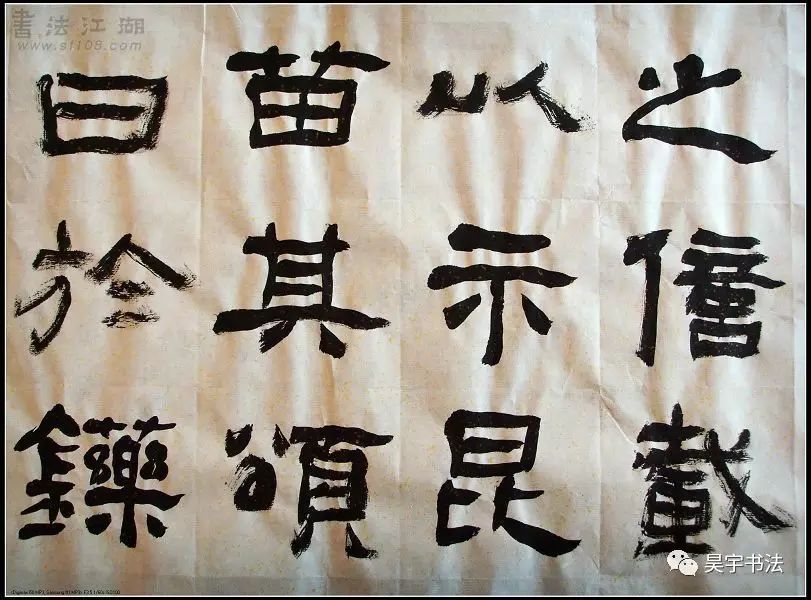 書法江湖
www.sf108.com
之儋載
以示昆
苗其頌
曰於鑠
昊宇书法